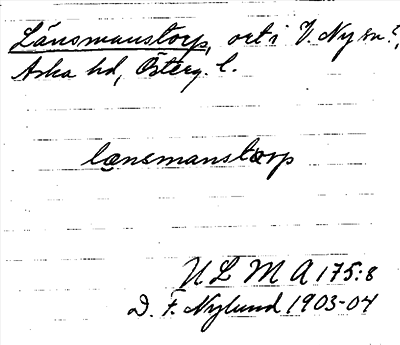 Länsmanstorp, ort i V. Ny sn?,
Aska hd, Österg. l.
lænsmanstɷrp
ULMA 175:8
D. F. Nylund 1903-04